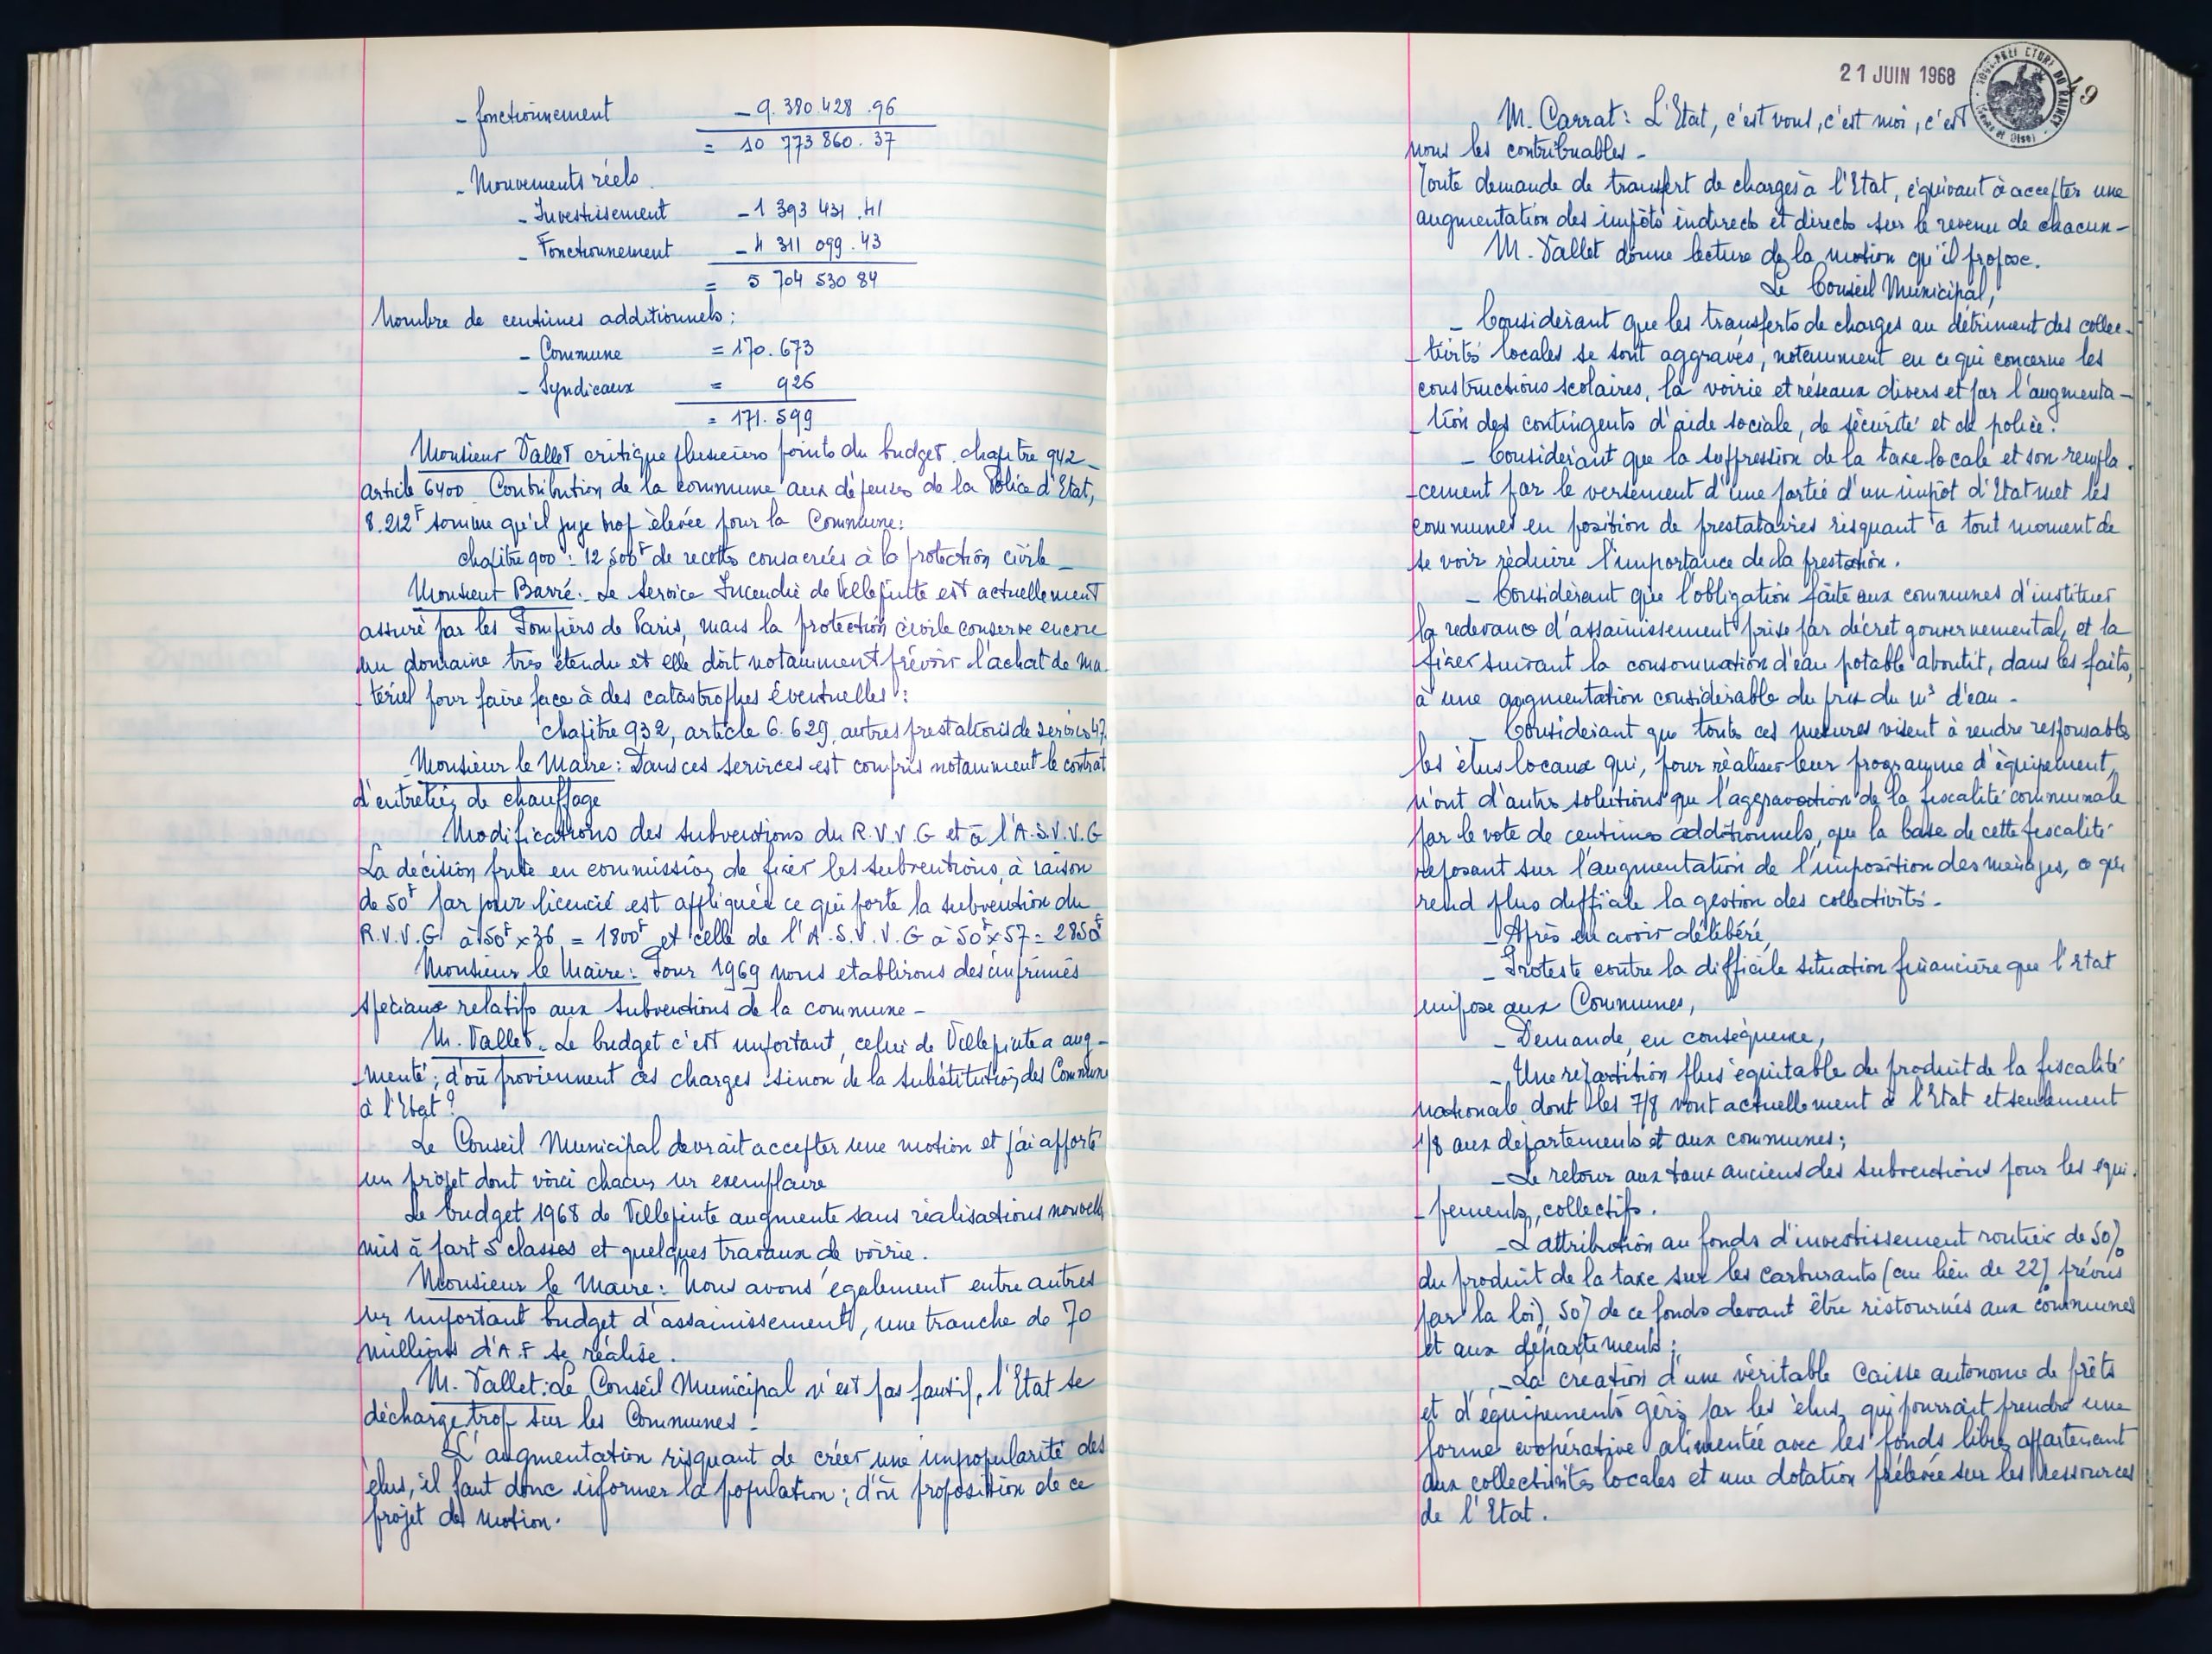 - fonctionnement - 9.380.428.96
= 10 773 860.37
- Mouvements réels.
- Investissement - 1 393 431.41
- Fonctionnement - 4 311 099.43
= 5 704 530 84
Nombre de centimes additionnels :
- Commune = 170.673
- Syndicaux = 926
= 171.599
Monsieur Vallet critique plusieurs points du budget. chapitre 942 -
article 6400. Contribution de la commune aux dépenses de la Police d'Etat,
8.212F somme qu'il juge trop élevée pour la Commune :
chapitre 900 : 12 500F de recettes consacrées à la protection civile -
Monsieur Barré : - Le Service Incendie de Villepinte est actuellement
assuré par les Pompiers de Paris, mais la protection civile conserve encore
un domaine très étendu et elle doit notamment prévoir l'achat de ma-
- tériel pour faire face à des catastrophes éventuelles :
chapitre 932, article 6.629, autres prestations de services 47.
- Monsieur le Maire : Dans ces services est compris notamment le contrat
d'entretien de chauffage
Modifications des subventions du R.V.V.G et à l'A.S.V.V.G
La décision prise en commission de fixer les subventions, à raison
de 50F par jour licencié est appliquée ce qui porte la subvention du
R.V.V.G à 50F x 36 = 1800F et celle de l'A.S.V.V.G à 50F x 57 = 2850F
Monsieur le Maire : Pour 1969 nous etablirons des imprimés
spéciaux relatifs aux subventions de la commune -
M. Vallet. Le budget c'est important, celui de Villepinte a aug-
- menté ; d'où proviennent ces charges sinon de la substitution des Commun
à l'Etat ?
Le Conseil Municipal devrait accepter une motion et j'ai apporté
un projet dont voici chacun un exemplaire
Le budget 1968 de Villepinte augmente sans réalisations nouvell
mis à part 5 classes et quelques travaux de voirie.
Monsieur le Maire : Nous avons également entre autres
un important budget d'assainissement, une tranche de 70
millions d'A.F se réalise.
M. Vallet : Le Conseil Municipal n'est pas fautif, l'Etat se
décharge trop sur les Communes.
L'augmentation risquant de créer une impopularité des
élus, il faut donc informer la population ; d'où proposition de ce
projet de motion.
21 JUIN 1968
SOUS-PRÉFECTURE DU RAINCY (Seine et Oise)
49
M. Carrat : L'Etat, c'est vous, c'est moi, c'est
nous les contribuables -
Toute demande de transfert de charges à l'Etat, équivaut à accepter une
augmentation des impôts indirects et directs sur le revenu de chacun -
M. Vallet donne lecture de la motion qu'il propose.
Le Conseil Municipal,
- Considérant que les transferts de charges au détriment des collec-
- tivités locales se sont aggravés, notemment en ce qui concerne les
constructions scolaires, la voirie et réseaux divers et par l'augmenta-
- tion des contingents d'aide sociale, de sécurité et de police.
- Considérant que la suppression de la taxe locale et son rempla.
- cement par le versement d'une partie d'un impôt d'Etat met les
communes en position de prestataires risquant à tout moment de
se voir réduire l'importance de la prestation.
- Considérant que l'obligation faite aux communes d'instituer
la redevance d'assainissement prise par décret gouvernemental, et la
fixer suivant la consommation d'eau potable aboutit, dans les faits,
à une augmentation considérable du prix du m³ d'eau -
- Considérant que toutes ces mesures visent à rendre responsables
les élus locaux qui, pour réaliser leur programme d'équipement,
n'ont d'autres solutions que l'aggravation de la fiscalité communale
par le vote de centimes additionnels, que la base de cette fiscalité
reposant sur l'augmentation de l'imposition des ménages, ce qui
rend plus difficile la gestion des collectivités -
- Après en avoir délibéré,
- Proteste contre la difficile situation financière que l'Etat
impose aux Communes,
- Demande, en conséquence,
- Une répartition plus équitable du produit de la fiscalité
nationale dont les 7/8 vont actuellement à l'Etat et seulement
1/8 aux départements et aux communes ;
- Le retour aux taux anciens des subventions pour les équi.
- pements, collectifs.
- L'attribution au fonds d'investissement routier de 50%
du produit de la taxe sur les carburants (au lieu de 22% prévus
par la loi), 50% de ce fonds devant être ristournés aux communes
et aux départements ;
- La création d'une véritable Caisse autonome de prêts
et d'équipements gérés par les élus, qui pourrait prendre une
forme coopérative alimentée avec les fonds libres appartenant
aux collectivités locales et une dotation prélevée sur les ressources
de l'Etat.